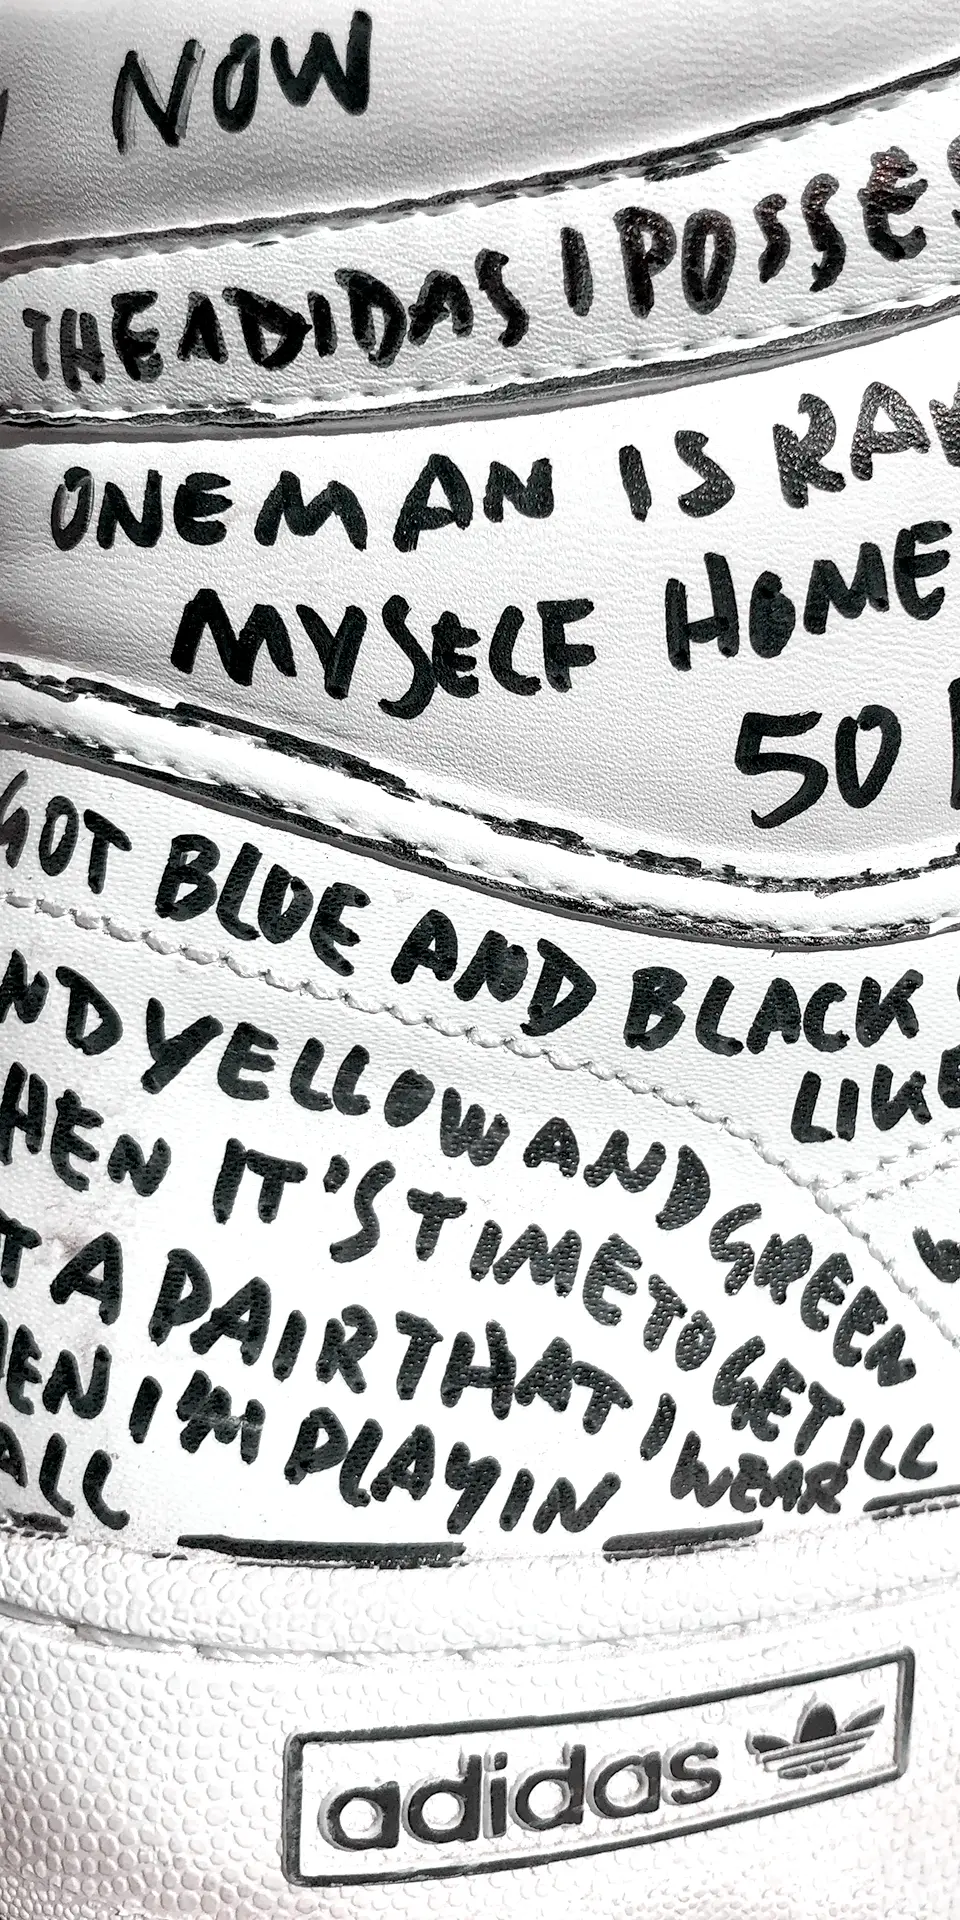 NOW
THE ADIDAS I POSSES
ONE MAN IS RA
MYSELF HOME
50
GOT BLUE AND BLACK
LIKE
ND YELLOW AND GREEN
HEN IT'S TIME TO GET ILL
T A PAIR THAT I WEAR
EN I'M PLAYIN
ALL
adidas